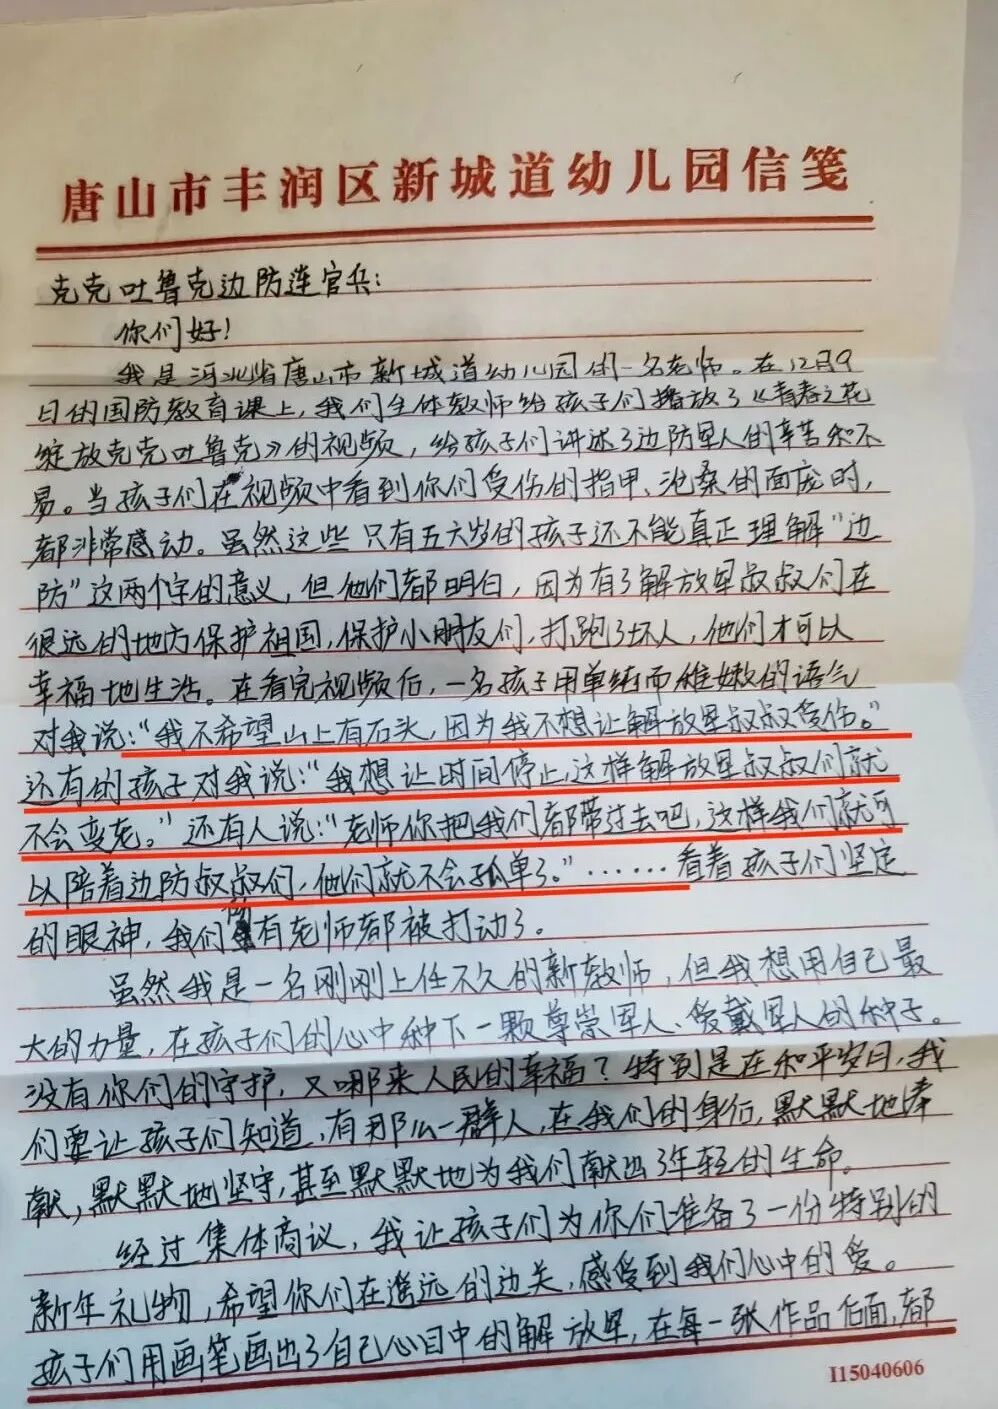 唐山市丰润区新城道幼儿园信笺
克克吐鲁克边防连官兵：
你们好！
我是河北省唐山市新城道幼儿园的一名老师。在12月9
日的国防教育课上，我们全体教师给孩子们播放了《青春之花
绽放克克吐鲁克》的视频，给孩子们讲述了边防军人的辛苦和不
易。当孩子们在视频中看到你们受伤的指甲、沧桑的面庞时，
都非常感动。虽然这些只有五六岁的孩子还不能真正理解“边
防”这两个字的意义，但他们都明白，因为有了解放军叔叔们在
很远的地方保护祖国，保护小朋友们，打跑了坏人，他们才可以
幸福地生活。在看完视频后，一名孩子用单纯而稚嫩的语气
对我说：“我不希望山上有石头，因为我不想让解放军叔叔受伤。”
还有的孩子对我说：“我想让时间停止，这样解放军叔叔们就
不会变老。”还有人说：“老师你把我们都带过去吧，这样我们就可
以陪着边防叔叔们，他们就不会孤单了。”……看着孩子们坚定
的眼神，我们所有老师都被打动了。
虽然我是一名刚刚上任不久的新教师，但我想用自己最
大的力量，在孩子们的心中种下一颗尊崇军人、爱戴军人的种子。
没有你们的守护，又哪来人民的幸福？特别是在和平岁日，我
们要让孩子们知道，有那么一群人，在我们的身后，默默地奉
献，默默地坚守，甚至默默地为我们献出了年轻的生命。
经过集体商议，我让孩子们为你们准备了一份特别的
新年礼物，希望你们在遥远的边关，感受到我们心中的爱。
孩子们用画笔画出了自己心目中的解放军，在每一张作品后面，都
I15040606